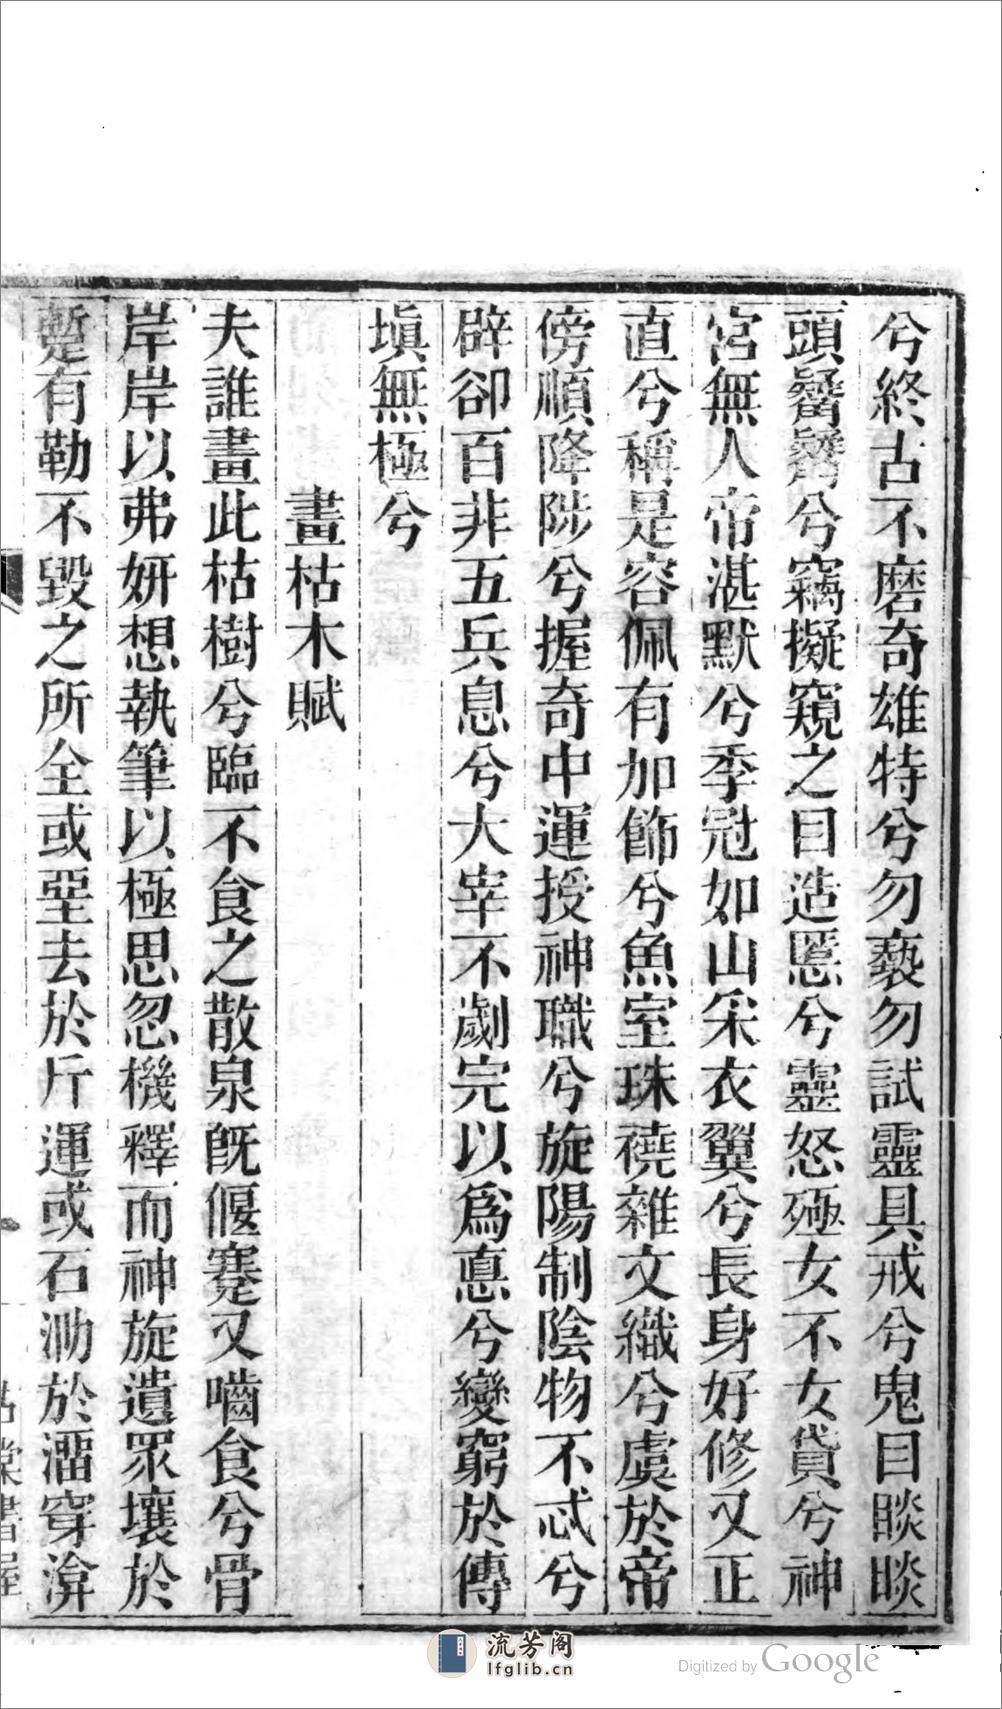 兮終古不磨奇雄特兮勿褻勿試靈具戒兮鬼目睒睒
頭鬙鬙兮竊擬窺之曰造慝兮靈怒殛女不女貸兮神
宮無人帝湛默兮季冠如山采衣翼兮長身好修又正
直兮稱是容佩有加飾兮魚室珠襓雜文織兮虞於帝
傍順降陟兮握奇中運授神職兮旋陽制陰物不忒兮
辟卻百非五兵息兮大宰不劌完以爲悳兮變窮於傳
塡無極兮
畫枯木賦
夫誰畫此枯樹兮臨不食之散泉旣偃蹇又嚙食兮骨
岸岸以弗姸想執筆以極思忽機釋而神旋遺眾壤於
蹔有勒不毀之所全或堊去於斤運或石泐於㴰穿渰
流芳阁
lfglib.cn
Digitized by Google